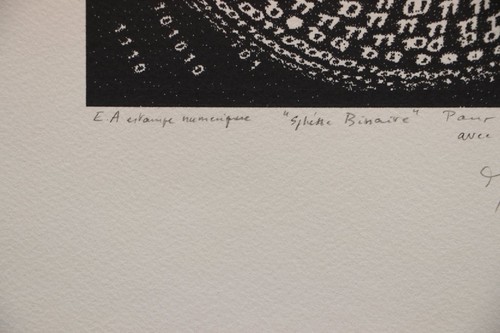 1110
101010
101
E.A estampe numerique "Sphère Binaire" Pour
avec